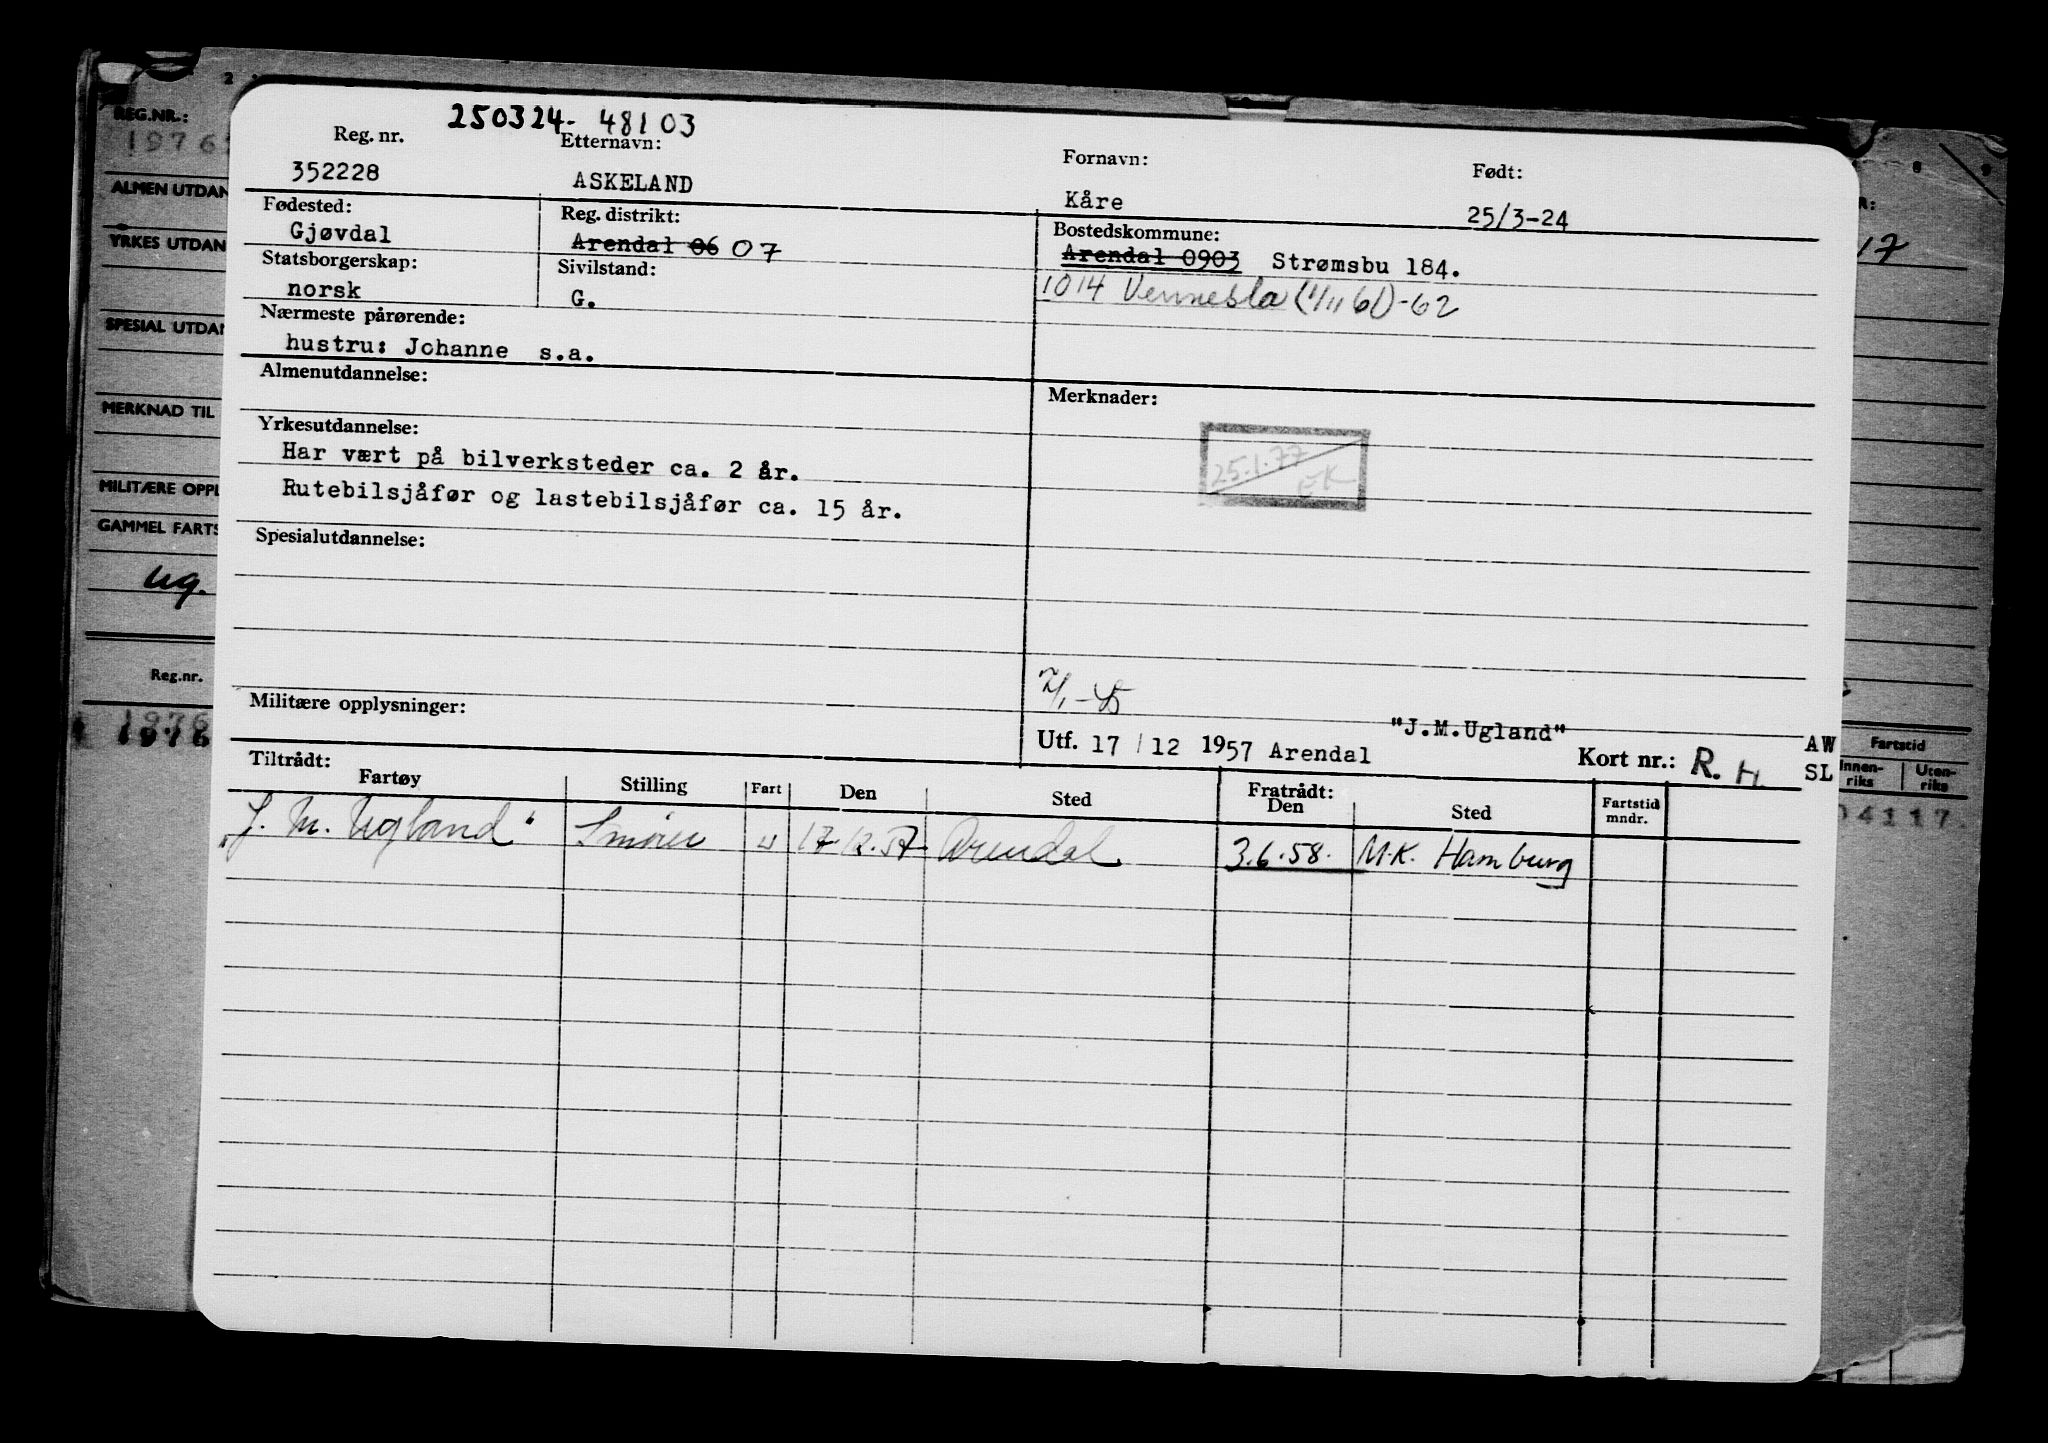 250324-48103
Reg. nr. Etternavn: Fornavn: Født:
352228 ASKELAND Kåre 25/3-24
Fødested: Reg. distrikt: Bostedskommune:
Gjøvdal Arendal 06 07 Arendal 0903 Strømsbu 184.
Statsborgerskap: Sivilstand: 1014 Vennesla (1/11 61)-62
norsk G.
Nærmeste pårørende:
hustru: Johanne s.a.
Almenutdannelse: Merknader:
Yrkesutdannelse:
Har vært på bilverksteder ca. 2 år. 25.1.77
Rutebilsjåfør og lastebilsjåfør ca. 15 år. EK
Spesialutdannelse:
Militære opplysninger:
"J.M.Ugland"
Utf. 17/12 1957 Arendal Kort nr.: R. H. AW
SL
Tiltrådt: Fratrådt:
Fartøy Stilling Fart Den Sted Den Sted Fartstid mndr.
"J. M. Ugland" Smører u 17.12.57. Arendal 3.6.58. M.K. Hamburg
2
REG.NR.:
1976
ALMEN UTDAN
YRKES UTDAN
SPESIAL UTDAN
MERKNAD TIL
MILITÆRE OPPL
GAMMEL FARTS
ug.
Reg.nr.
1976
8 9
R:
17
Fartstid
Innen-riks Uten-riks
04117.